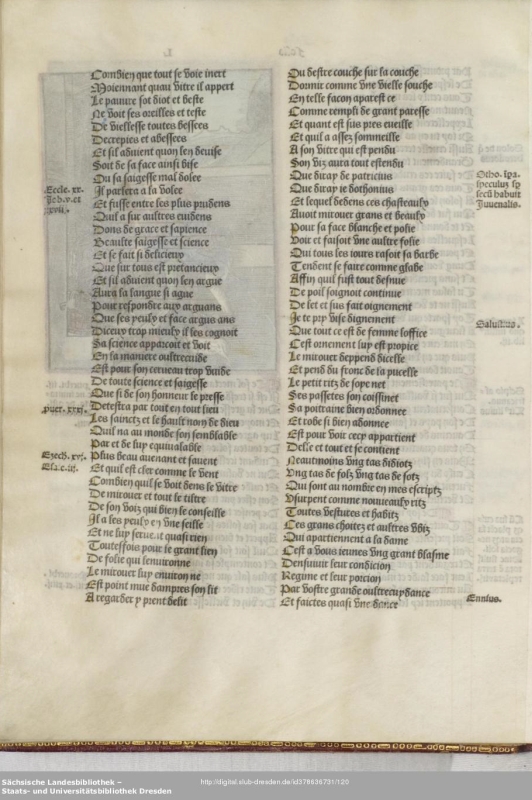 Combien que tout se voie inert
Moiennant quau vitre il appert
Le pauure sot idiot et beste
Ne voit ses oreilles et teste
De vieillesse toutes bessees
Decrepies et abessees
Et sil aduient quon len deuise
Soit de sa face ainsi bise
Ou sa saigesse mal dolee
Il parlera a la volee
Et fusse entre les plus prudens
Quil a sur aultres euidens
Dons de grace et sapience
Beaulte saigesse et science
Et se fait si delicieux
Que sur tous est pretancieux
Et sil aduient quon len argue
Aura la langue si ague
Pour respondre aux arguans
Que ses yeulx et face argus ans
Diceux trop mieulx il les cognoit
Sa science apparcoit et voit
En sa maniere oultrecuide
Est pour son cerueau trop vuide
De toute science et saigesse
Que si de son honneur le presse
Detestra par tout en tout lieu
Les sainctz et le hault nom de dieu
Quil na au monde son semblable
Par et de luy equiualable
Plus beau auenant et sauent
Et quil est cler comme le vent
Combien quil se voit dens le vitre
De mirouer et tout le tiltre
De son voiz qui bien se conseille
Il a les yeulx en vne seille
Et ne luy serue it quasi rien
Toutessois pour le grant lien
De folie qui lenuironne
Le mirouer luy enuiron ne
Est point mue dampres son lit
A regarder y prent delit
Eccle. xx.
Prob. v. et
xvii.
puer. xxxi.
Ezech. xxj.
Esa. c. iij.
Ou destre couche sur la couche
Dormir comme vne vielle souche
En telle facon aparest ce
Comme rempli de grant paresse
Et quant est sus pres eueille
Et quil a assez sommeille
A son vitre qui est pendu
Son viz aura tout estendu
Que diray de patricius
Que diray ie dothonius
Et lequel dedens ces chasteaulx
Auoit mirouer grans et beaulx
Pour sa face blanche et polie
Voir et faisoit vne aultre folie
Qui tous les iours rasoit sa barbe
Tendent se faire comme glabe
Affin quil fust tout desnue
De poil soignoit continue
De let et sus fait oignement
Je te pry vise dignement
Que tout ce est de femme loffice
Cest ornement luy est propice
Le mirouer deppend dicelle
Et pend du fronc de la pucelle
Le petit ritz de sope net
Ses passetes son coissinet
Sa poitraine bien ordonnee
Et robe si bien adonnee
Est pour voir cecy appartient
Delle et tout et se contient
Neautmoins vng tas didiotz
Vng tas de folz vng tas de sotz
Qui sont au nombre en mes escriptz
Vsurpent comme nouueaulx ritz
Toutes vestures et habitz
Ces grans choitez et aultres vbiz
Qui apartiennent a la dame
Cest a vous iennes vng grant blasme
Densuuir leur condicion
Regime et leur porcion
Par vostre grande oultrecuydance
Et faictes quasi vne dance
Otho. ipa.
speculuz sp
secū habuit
Juuenalis.
Salustius.
Ennius.
Sächsische Landesbibliothek –
Staats- und Universitätsbibliothek Dresden
http://digital.slub-dresden.de/id378636731/120